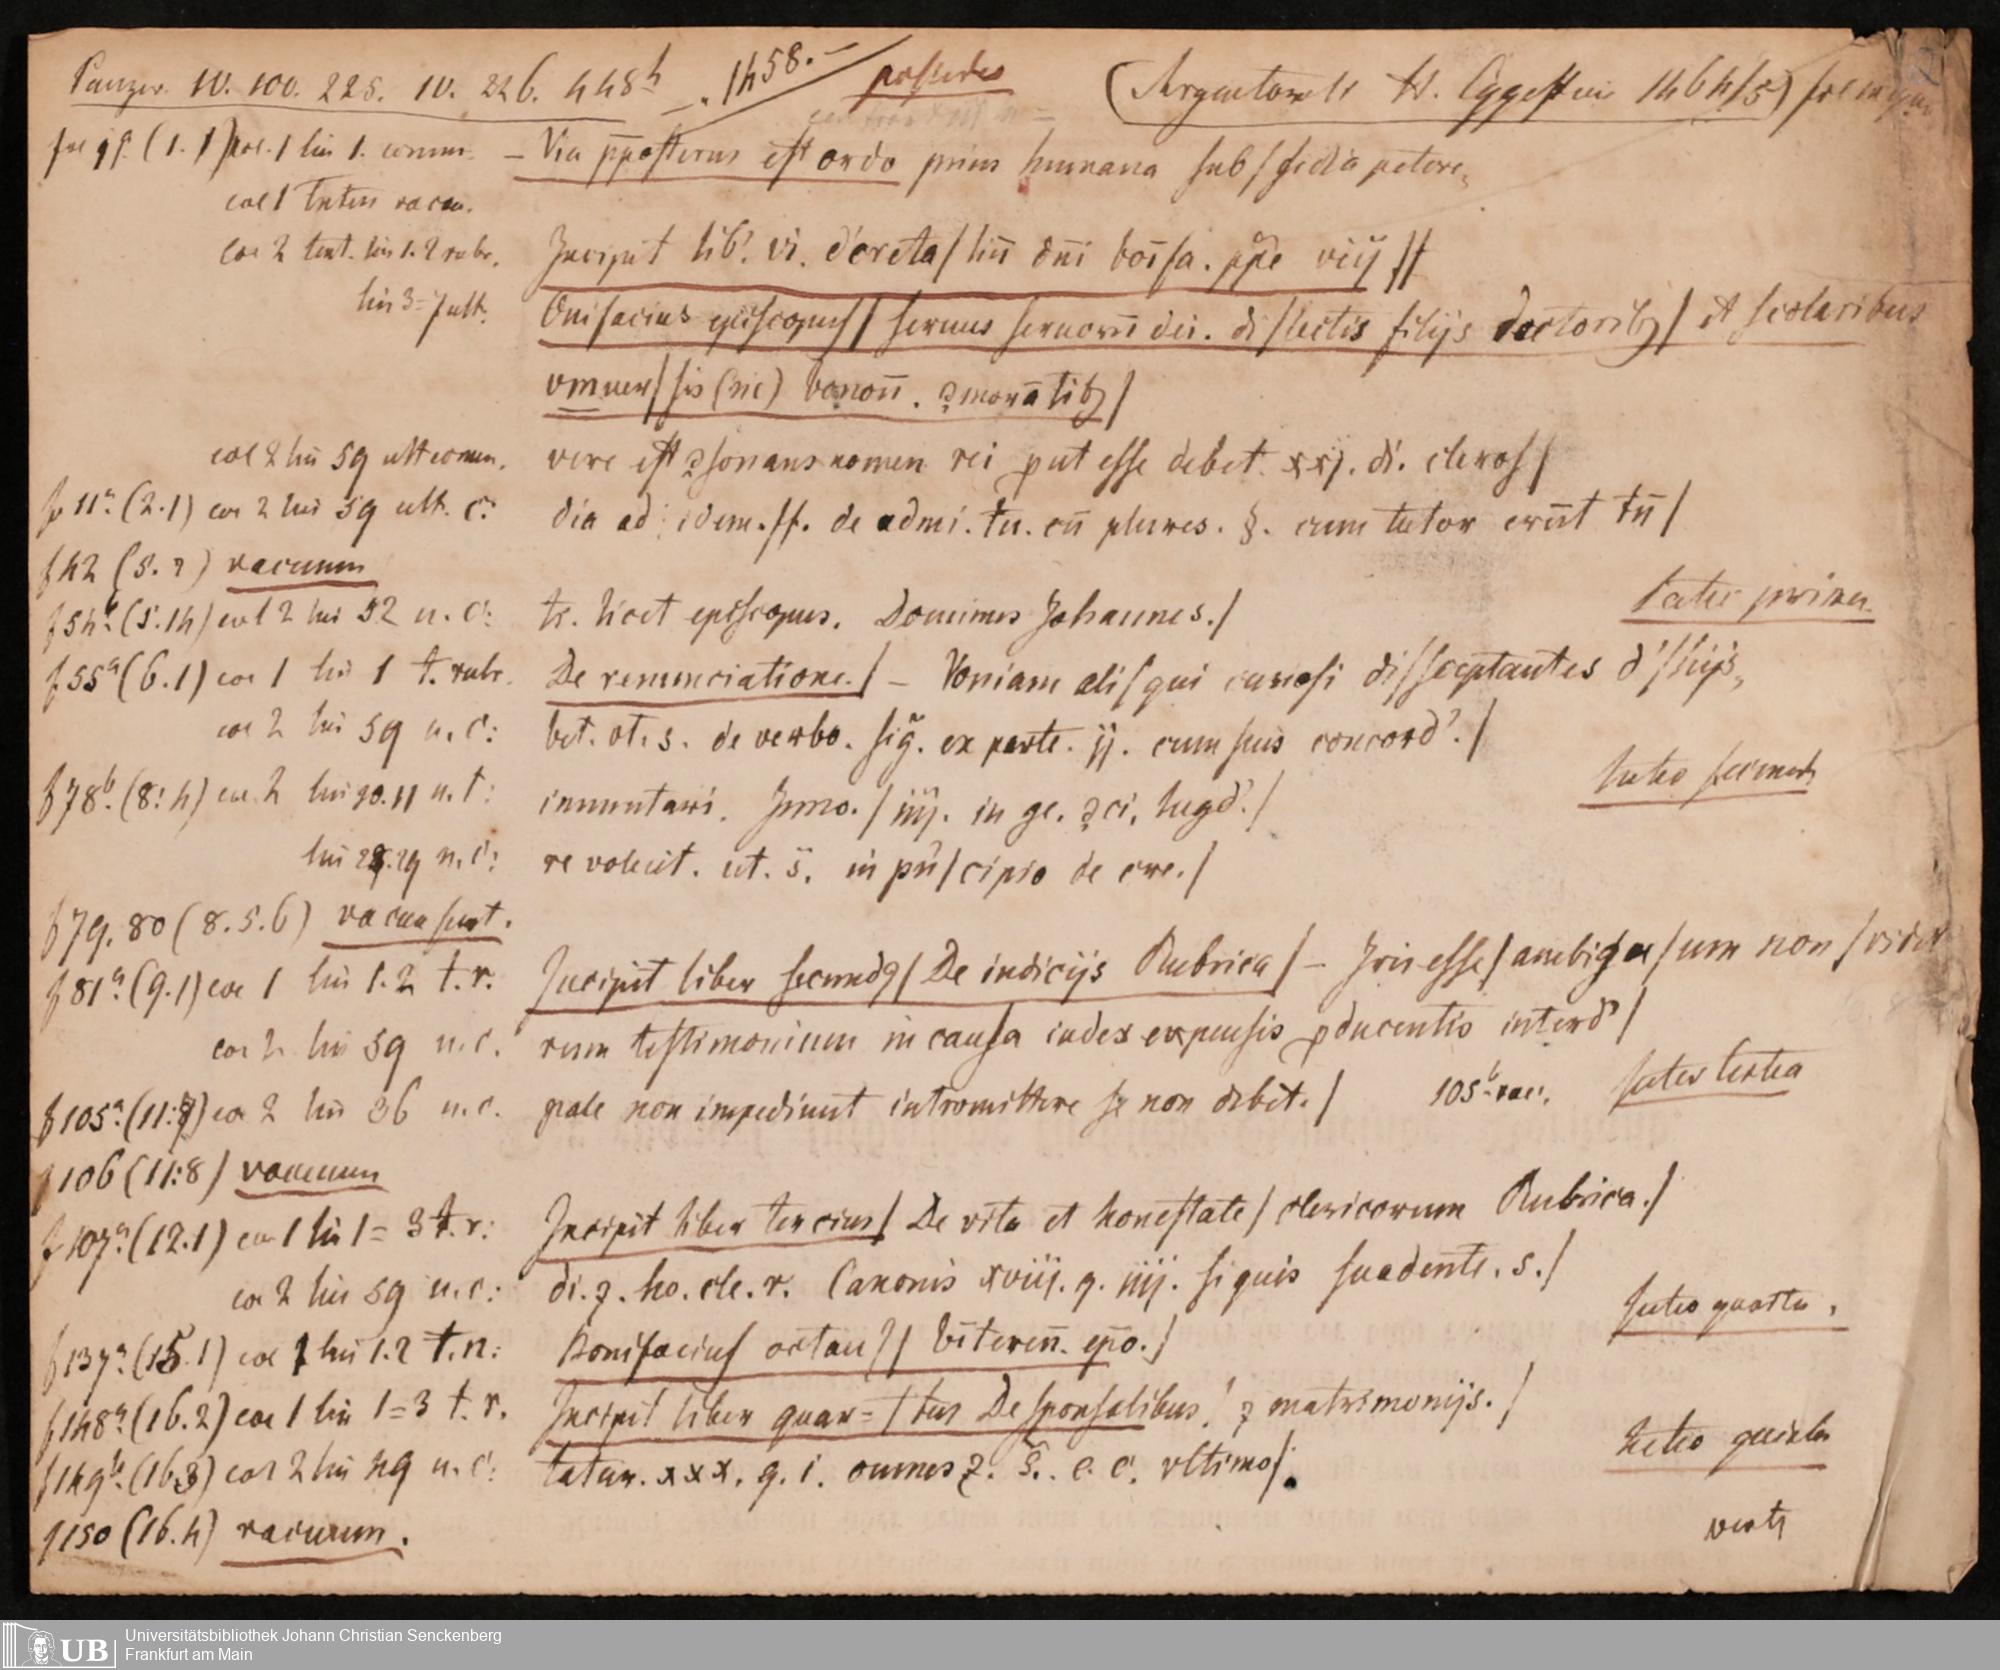 Panzer IV. 100. 225. IV. 226. 448h 1458. (Argentorati H. Eggestein 1464/5)
(1.1) col. 1 lin 1. comm. – Via pposterus est ordo prius humana sub/sidia petere,
col 1 textus vacu.
col 2 text. lin 1.2 rubr. Incipit lib'. vi. d'creta/liū dn̄i boīfa. ppe viij //
lin 3= ult. Onifacius episcopus/ seruus seruorū dei. di/lectis filijs doctorib9/ et scolaribus
vmuer/sis (sic) bonoū. ꝯmorātib9/
col 2 lin 59 ult comm. vere est ꝯsonans nomen rei put esse debet. xxj. di. cleros/
f 11a. (2.1) col 2 lin 59 ult. c: dia ad idem. ff. de admi. tu. cū plures. §. cum tutor erūt tū/
f 42 (5.2) vacuum
f 54b. (5.14) col 2 lin 52 u. c: tr. licet episcopus. Dominus Johannes./
f 55a (6.1) col 1 lin 1 t. rubr. De renunciatione./ – Voniam ali/qui curiosi di/sceptantes
col 2 lin 59 u. c: bet. ot. s. de verbo. sig̃. ex parte. ij. cum suis concord'./
f 78b. (8:4) col. 2 lin 10.11 u. t: inmutari. Inno./ iiij. in ge. ꝯci. lugd'./
lin 28.29 u. c: re voluit. ut. s̄. in prī/cipio de ere./
f 79. 80 (8.5.6) vacua sunt.
f 81a. (9.1) col 1 lin 1.2 t. r. Incipit liber secund9/ De indicijs Rubrica/ – Iris esse/ ambigu/um non
col 2 lin 59 u. c. rum testimonium in causa iudex expensis pducentis interd'/
f 105a. (11:7) col 2 lin 36 u. c. pale non impediunt intromittere se non debet./ 105b. vac.
f 106 (11:8) vacuum
f 107a. (12.1) col 1 lin 1= 3 t. r: Incipit liber tercius/ De vita et honestate/ clericorum Rubrica./
col 2 lin 59 u. c: di. ꝫ. ho. cle. r. Canonis xviij. q. iiij. si quis suadente. s./
f 137a. (15.1) col 1 lin 1.2 t. r: Bonifacius octau'// Biteren̄. ep̄o./
f 148a. (16.2) col 1 lin 1=3 t. r. Incipit liber quar=/tus De sponsalibus/ ꝫ matrimonijs./
f 149b. (16.3) col 2 lin 49 u. c: tatur. xxx. q. i. omnes ꝫ. s̄. e. c. vltimo/.
f 150 (16.4) vacuum.
verte
Universitätsbibliothek Johann Christian Senckenberg
Frankfurt am Main
UB